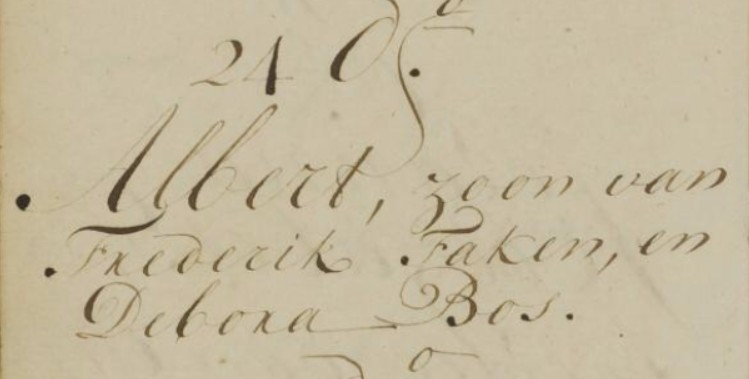 24 d°.
Albert, zoon van
Frederik Faken, en
Debora Bos.